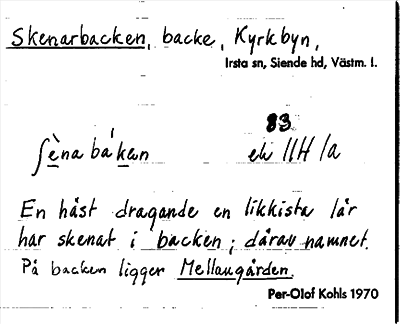 Skenarbacken, backe, Kyrkbyn,
Irsta sn, Siende hd, Västm. l.
83
ʃèna bákan ek 11H 1a
En häst dragande en likkista lär
har skenat i backen; därav namnet.
På backen ligger Mellangården.
Per-Olof Kohls 1970